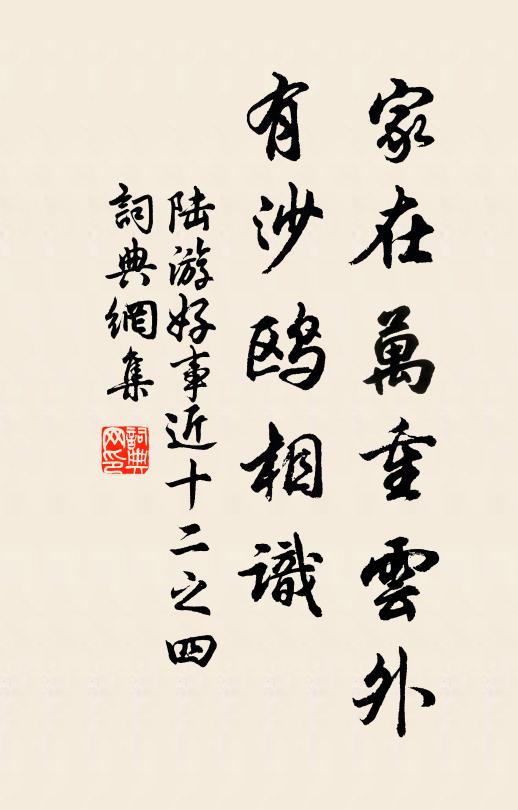 家在萬重雲外
有沙鷗相識
陆游好事近十二之四
詞典網集
詞典网印